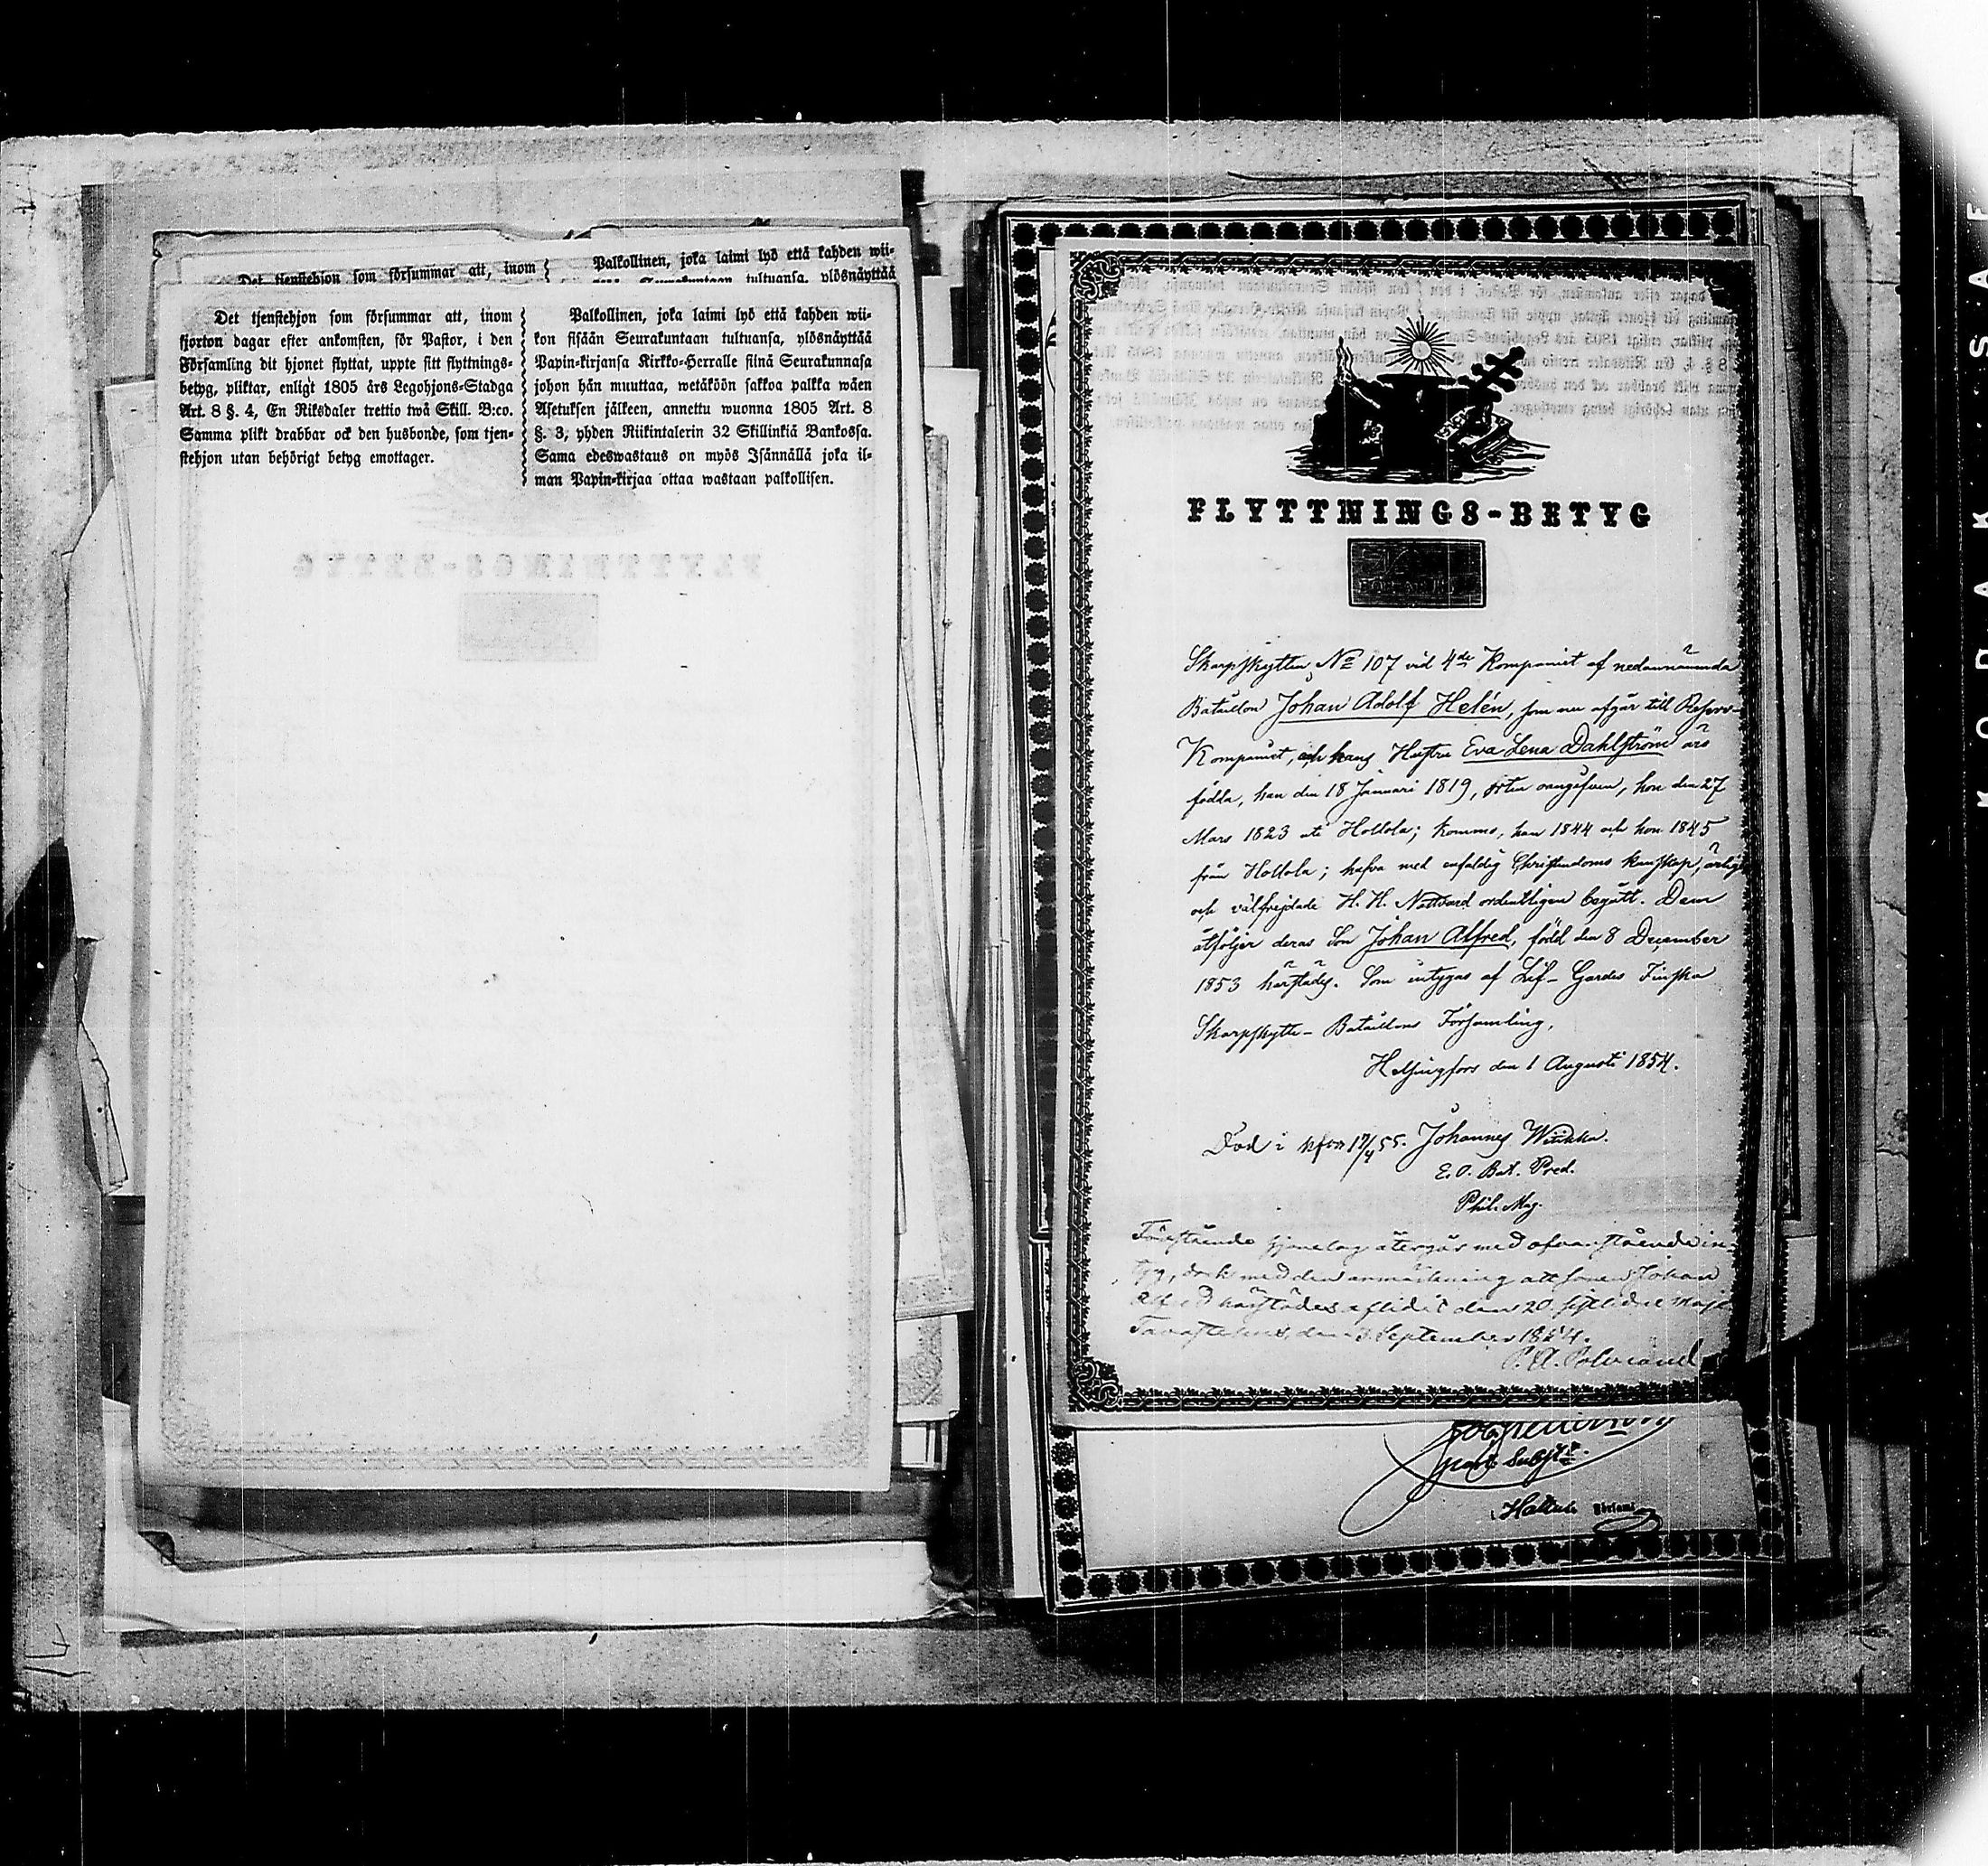 Det tjenstehjon som försummar att, inom
Palkollinen, joka laimi lyö että kahden wii-
Det tjenstehjon som försummar att, inom
fjorton dagar efter ankomsten, för Pastor, i den
Församling dit hjonet flyttat, uppte sitt flyttnings-
betyg, pliktar, enligt 1805 års Legohjons-Stadga
Art. 8 §. 4, En Riksdaler trettio twå Skill. B:co.
Samma plikt drabbar ock den husbonde, som tjen-
stehjon utan behörigt betyg emottager.
Palkollinen, joka laimi lyö että kahden wii-
kon sisään Seurakuntaan tultuansa, ylösnäyttää
Papin-kirjansa Kirkko-Herralle siinä Seurakunnasa
johon hän muuttaa, wetäköön sakkoa palkka wäen
Asetuksen jälkeen, annettu wuonna 1805 Art. 8
§. 3, yhden Riikintalerin 32 Skillinkiä Bankossa.
Sama edeswastaus on myös Isännällä joka il-
man Papin-kirjaa ottaa wastaan palkollisen.
FLYTTNINGS-BETYG
Skarpskytten No 107 vid 4de Kompaniet af nedannämnda
Bataillon Johan Adolf Helén, som nu afgår till Reserv-
Kompaniet, och hans Hustru Eva Lena Dahlström äro
födda, han den 18 Januari 1819, orten oangifven, hon den 27
Mars 1823 uti Hollola; komne, han 1844 och hon 1845
från Hollola; hafva med enfaldig Christendoms kunskap, ärlige
och välfrejdade H. H. Nattvard ordentligen begått. Dem
åtföljer deras Son Johan Alfred, född den 8 December
1853 härstädes. Som intygas af Lif-Gardes Finska
Skarpskytte-Bataillons Församling,
Helsingfors den 1 Augusti 1854.
Död i 17/4 55. Johannes
E. O. Bat. Pred.
Phil. Mag.
Förestående återgår med ofvanstående in-
tyg, dock med den anmärkning att sonen Johan
Alfred härstädes aflidit den 20 sistlidne Maji
Tavastehus den 3 September 1854.
P. A.